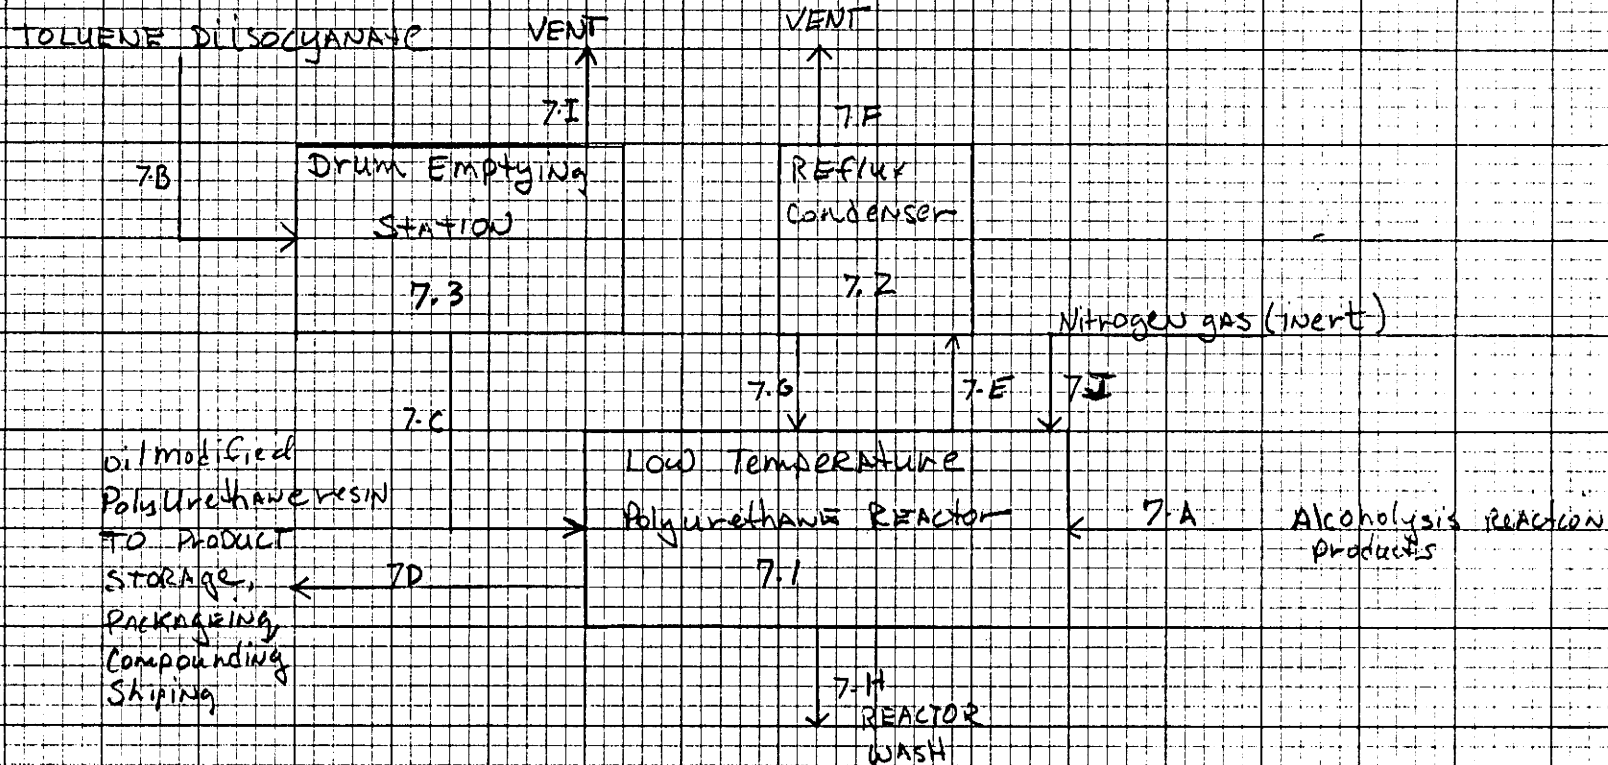 TOLUENE DiISOCYANATE
VENT
VENT
7.I
7.F
7.B
Drum Emptying
STATION
7.3
REflux
Condenser
7.2
Nitrogen gAS (inert)
7.G
7.E
7.J
7.C
oil modified
PolyUrethane resin
TO PRODUCT
STORAGE,
PACKAGEING,
Compounding
Shiping
Low Temperature
Polyurethane REActor
7.1
7.A
Alcoholysis REACtion
products
7D
7.H
REACTOR
WASH